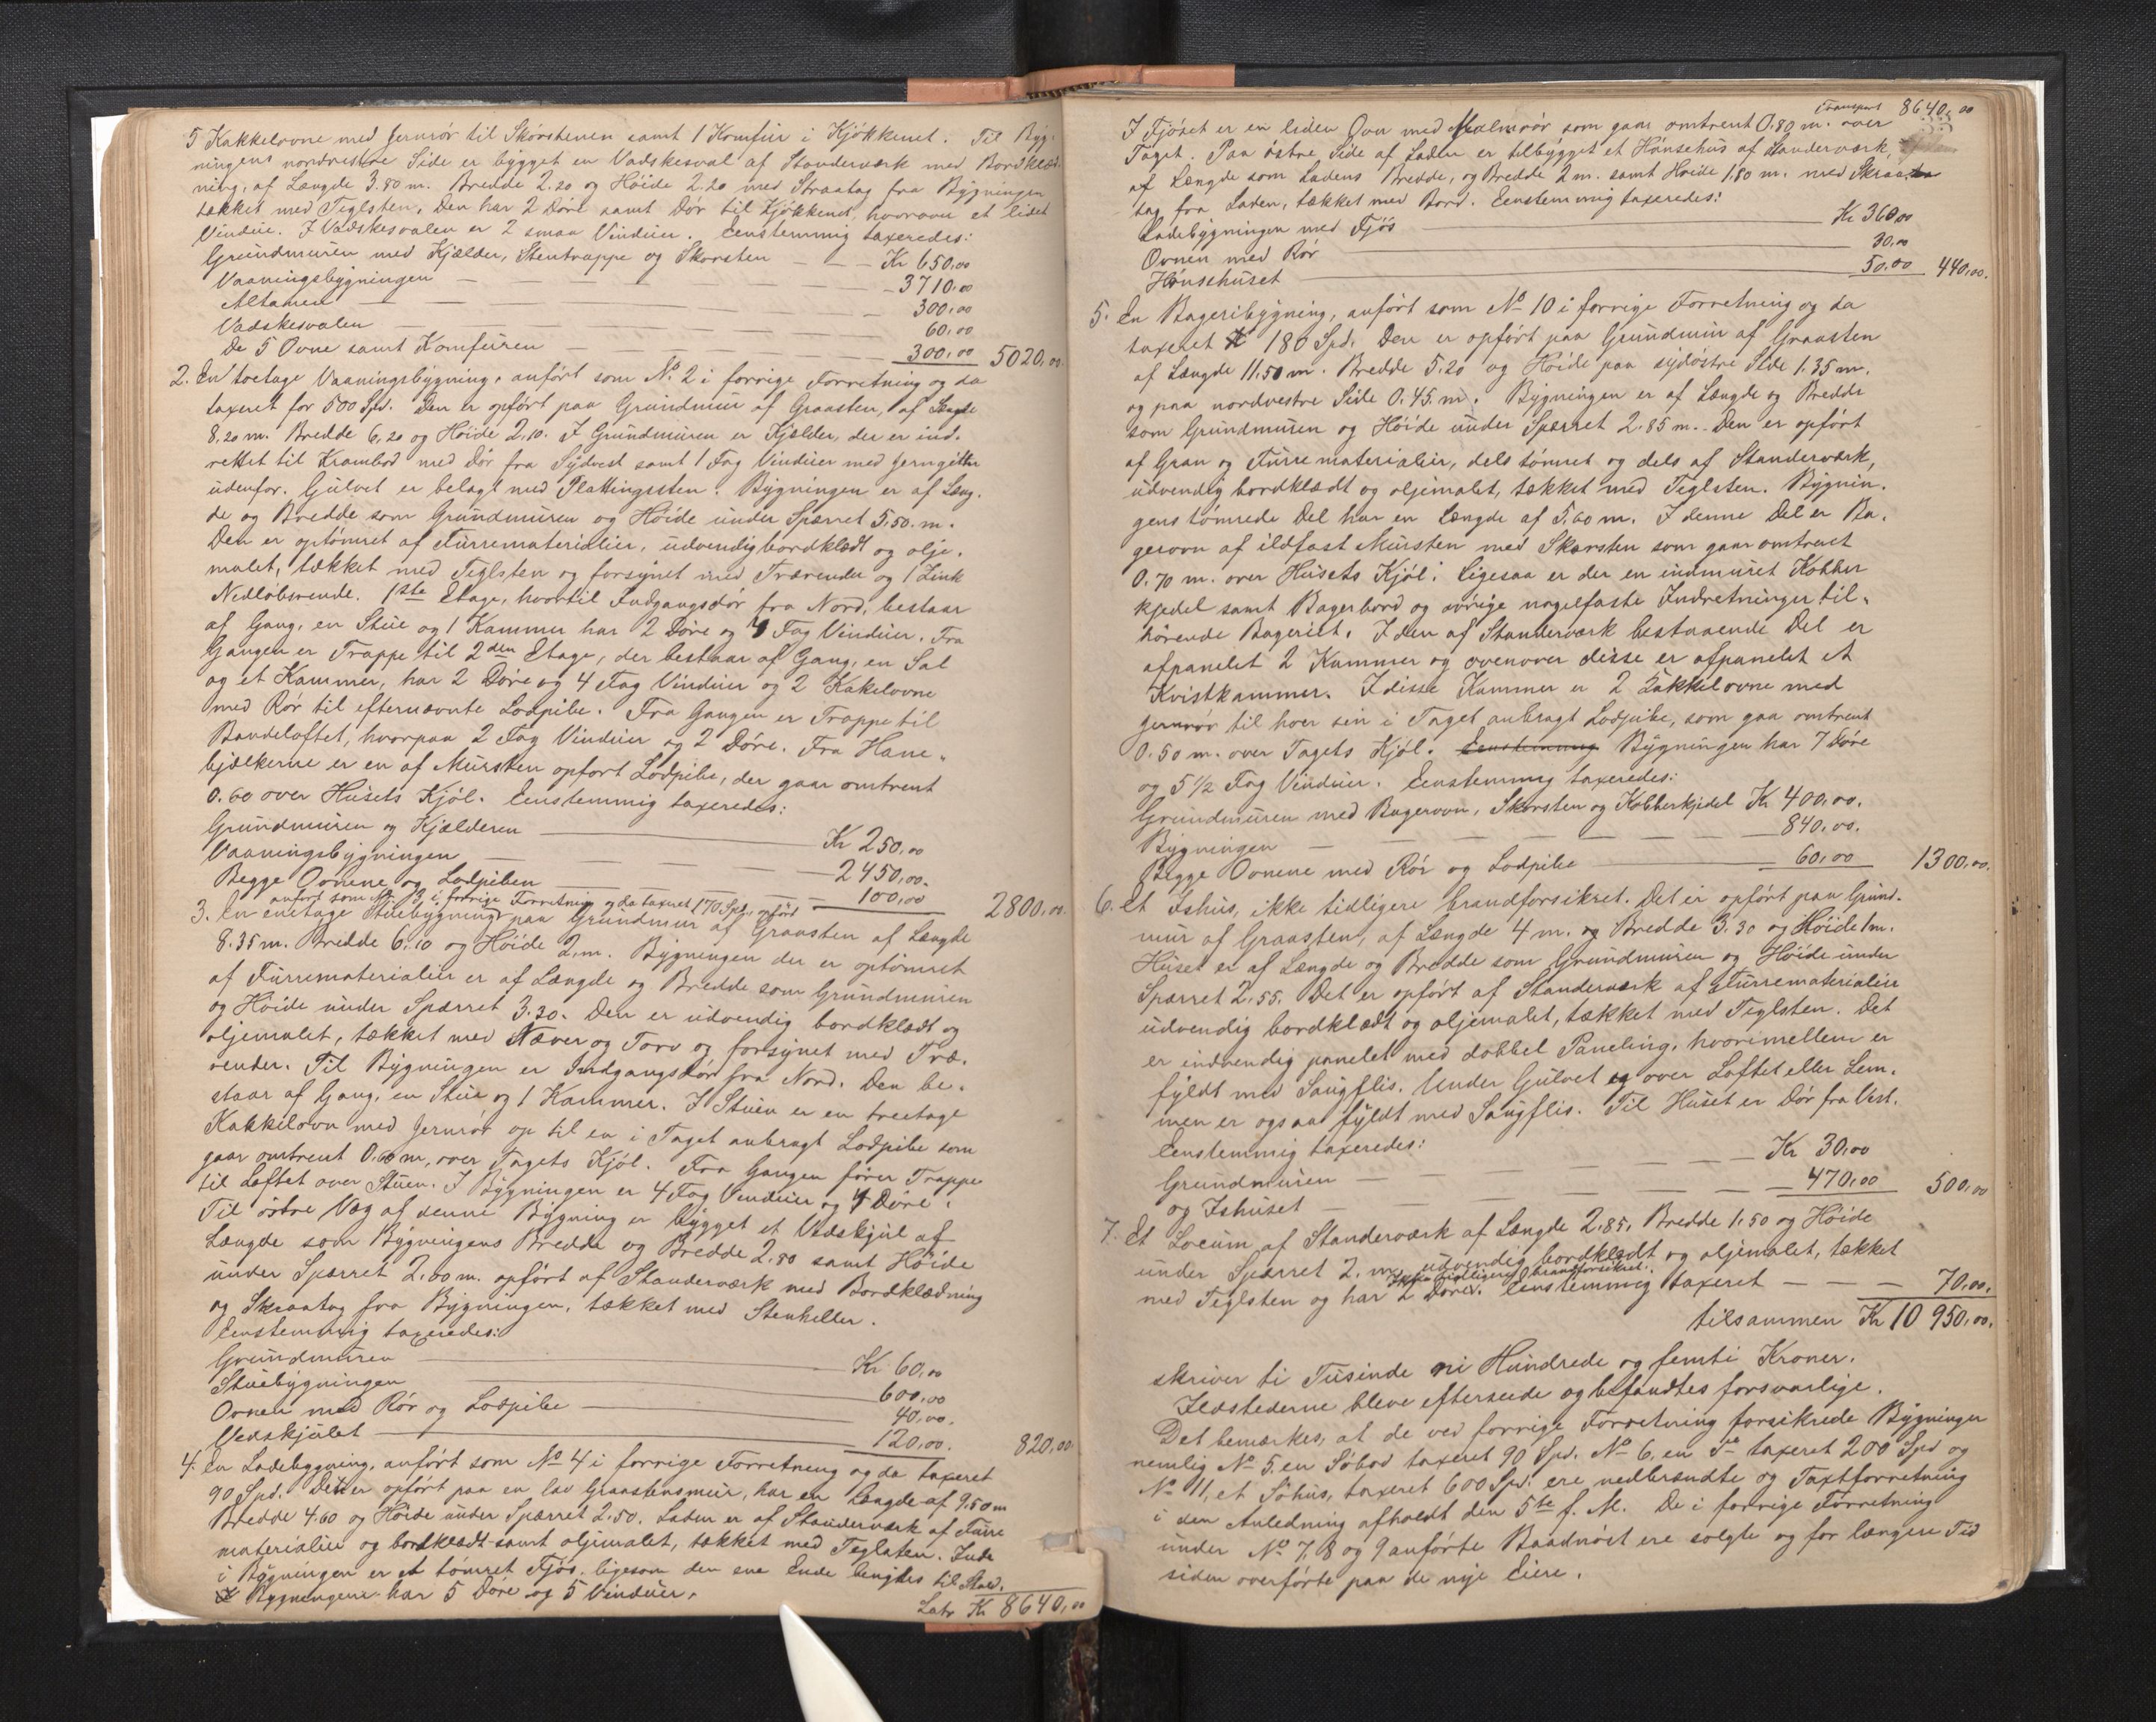 5 Kakkelovne med Jernrör til Skorstenen samt 1 Komfur i Kjökkenet. Til Byg-
ningens nordvestre Side er bygget en Vadskesval af Standerværk med Bordklæd-
ning, af Længde 3.80 m. Bredde 2.20 og Höide 2.20 med Straatag fra Bygningen
tækket med Teglsten. Den har 2 Döre samt Dör til Kjökkenet, hvorover et lidet
Vindue. I Vadskesvalen er 2 smaa Vinduer. Eenstemmig taxeredes:
Grundmuren med Kjælder, Stentrappe og Skorsten — — Kr 650,00
Vaaningsbygningen — — — — — 3710,00
Altanen — — — 300,00
Vadskesvalen — — — 60,00
De 5 Ovne samt Komfuren — — — 300,00 5020,00.
2. En toetage Vaaningsbygning, anfört som No. 2 i forrige Forretning og da
taxeret for 500 Spd. Den er opfört paa Grundmur af Graasten, af Længde
8.20 m. Bredde 6,20 og Höide 2,10. I Grundmuren er Kjælder, der er ind-
rettet til Krambod med Dör fra Sydvest samt 1 Fag Vinduer med Jerngitter
udenfor. Gulvet er belagt med Plattingssten. Bygningen er af Læng-
de og Bredde som Grundmuren og Höide under Spærret 5,50. m.
Den er optömret af Furrematerialier, udvendig bordklædt og olje-
malet, tækket med Teglsten og forsynet med Trærender og 1 Zink
Nedlöbsrende. 1ste Etage, hvortil Indgangsdör fra Nord, bestaar
af Gang, en Stue og 1 Kammer har 2 Döre og 4 Fag Vinduer. Fra
Gangen er Trappe til 2den Etage, der bestaar af Gang, en Sal
og et Kammer, har 2 Döre og 4 Fag Vinduer og 2 Kakelovne
med Rör til efternævnte Lodpibe. Fra Gangen er Trappe til
Bandeloftet, hvorpaa 2 Fag Vinduer og 2 Döre. Fra Hane-
bjælkerne er en af Mursten opfört Lodpibe, der gaar omtrent
0.60 over Husets Kjöl. Eenstemmig taxeredes:
Grundmuren og Kjælderen — Kr 250,00
Vaaningsbygningen — — — 2450,00.
Begge Ovnene og Lodpiben — — — 100,00 2800,00.
anfört som No 3 i forrige Forretning og da taxeret 170 Spd, opfört
3. En enetage Stuebygning paa Grundmur af Graasten af Længde
8.35 m. Bredde 6.10 og Höide 2. m. Bygningen der er optömret
af Furrematerialier er af Længde og Bredde som Grundmuren
og Höide under Spærret 3.30. Den er udvendig bordklædt og
oljemalet, tækket med Næver og Torv og forsynet med Træ-
render. Til Bygningen er Indgangsdör fra Nord. Den be-
staar af Gang, en Stue og 1 Kammer. I Stuen er en treetage
Kakkelovn med Jernrör op til en i Taget anbragt Lodpibe som
gaar omtrent 0.60 m, over Tagets Kjöl. Fra Gangen förer Trappe
til Loftet over Stuen. I Bygningen er 4 Fag Vinduer og 4 Döre.
Til östre Væg af denne Bygning er bygget et Vedskjul af
Længde som Bygningens Bredde og Bredde 2.80 samt Höide
under Spærret 2.00 m. opfört af Standerværk med Bordklædning
og Skraatag fra Bygningen, tækket med Stenheller.
Eenstemmig taxeredes:
Grundmuren — Kr 60,00
Stuebygningen — 600,00
Ovnen med Rör og Lodpibe — 40,00.
Vedskjulet — 120,00. 820,00.
4. En Ladebygning, anfört som No 4 i forrige Forretning og da taxeret
90 Spd. Den er opfört paa en lav Graastensmur, har en Længde af 9.50 m
Bredde 4.60 og Höide under Spærret 2.50. Laden er af Standerværk af Furre
materialier og bordklædt samt oljemalet, tækket med Teglsten. Inde
i Bygningen er et tömret Fjös, ligesom den ene Ende benyttes til Stald.
Bygningerne har 5 Döre og 5 Vinduer.
Latr Kr 8640,00
Transport 8640,00
I Fjöset er en liden Ovn med Malmrör som gaar omtrent 0.80 m. over
Taget. Paa östre Side af Laden er tilbygget et Hönsehus af Standerværk,
af Længde som Ladens Bredde, og Bredde 2 m. samt Höide 1.80 m. med Skraa
tag fra Laden, tækket med Bord. Eenstemmig taxeredes:
Ladebygningen med Fjös — Kr 360,00
Ovnen med Rör — 30,00
Hönsehuset — 50,00 440,00.
5. En Bageribygning, anfört som No 10 i forrige Forretning og da
taxeret 180 Spd. Den er opfört paa Grundmur af Graasten
af Længde 11.50 m. Bredde 5.20 og Höide paa sydöstre Side 1.35 m.
og paa nordvestre Side 0.45. m. Bygningen er af Længde og Bredde
som Grundmuren og Höide under Spærret 2.85 m. Den er opfört
af Gran og Furrematerialier, dels tömret og dels af Standerværk,
udvendig bordklædt og oljemalet, tækket med Teglsten. Bygnin-
gens tömrede Del har en Længde af 5.60 m. I denne Del er Ba-
gerovn af ildfast Mursten med Skorsten som gaar omtrent
0.70 m. over Husets Kjöl. Ligesaa er der en indmuret Kobber
kjedel samt Bagerbord og övrige nagelfaste Indretninger til-
hörende Bageriet. I den af Standerværk bestaaende Del er
afpanelet 2 Kammer og ovenover disse er afpanelet et
Kvistkammer. I disse Kammer er 2 Kakkelovne med
Jernrör til hver sin i Taget anbragt Lodpibe, som gaa omtrent
0.50 m. over Tagets Kjöl. Eenstemmig Bygningen har 7 Döre
og 5½ Fag Vinduer. Eenstemmig taxeredes:
Grundmuren med Bagerovn, Skorsten og Kobberkjedel Kr 400,00.
Bygningen — — — 840,00.
Begge Ovnene med Rör og Lodpibe — 60,00 1300,00.
6. Et Ishus, ikke tidligere brandforsikret. Det er opfört paa Grund-
mur af Graasten, af Længde 4 m. og Bredde 3.30 og Höide 1 m.
Huset er af Længde og Bredde som Grundmuren og Höide under
Spærret 2,55. Det er opfört af Standerværk af Furrematerialier
udvendig bordklædt og oljemalet, tækket med Teglsten. Det
er indvendig panelet med dobbel Paneling, hvorimellem er
fyldt med Saugflis. Under Gulvet og over Loftet eller Lem-
men er ogsaa fyldt med Saugflis. Til Huset er Dör fra Vest.
Eenstemmig taxeredes:
Grundmuren — — — Kr 30,00
og Ishuset — — — 470,00 500,00
7. Et Locum af Standerværk af Længde 2.85, Bredde 1.50 og Höide
under Spærret 2. m, udvendig bordklædt og oljemalet, tækket
Ikke tidligere brandforsikret.
med Teglsten og har 2 Döre. Eenstemmig taxeret — — — 70,00.
tilsammen Kr 10 950,00.
skriver ti Tusinde ni Hundrede og femti Kroner.
Ildstederne bleve efterseede og befandtes forsvarlige.
Det bemærkes, at de ved forrige Forretning forsikrede Bygninger
nemlig No 5. en Söbod taxeret 90 Spd. No 6, en do taxeret 200 Spd og
No 11, et Söhus, taxeret 600 Spd. ere nedbrændte og Taxtforretning
i den Anledning afholdt den 5te f. M. De i forrige Forretning
under No 7, 8 og 9 anförte Baadnöst ere solgte og for længere Tid
siden overförte paa de nye Eiere.